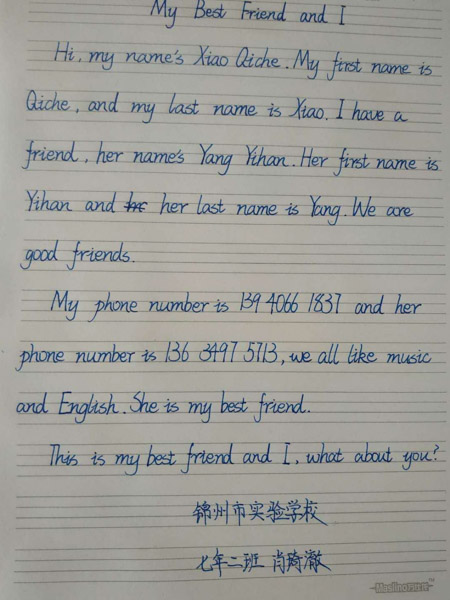 My Best Friend and I
Hi, my name's Xiao Qiche. My first name is
Qiche, and my last name is Xiao. I have a
friend, her name's Yang Yihan. Her first name is
Yihan and her last name is Yang. We are
good friends.
My phone number is 139 4066 1837 and her
phone number is 136 3497 5713, we all like music
and English. She is my best friend.
This is my best friend and I, what about you?
锦州市实验学校
七年二班 肖琦澈